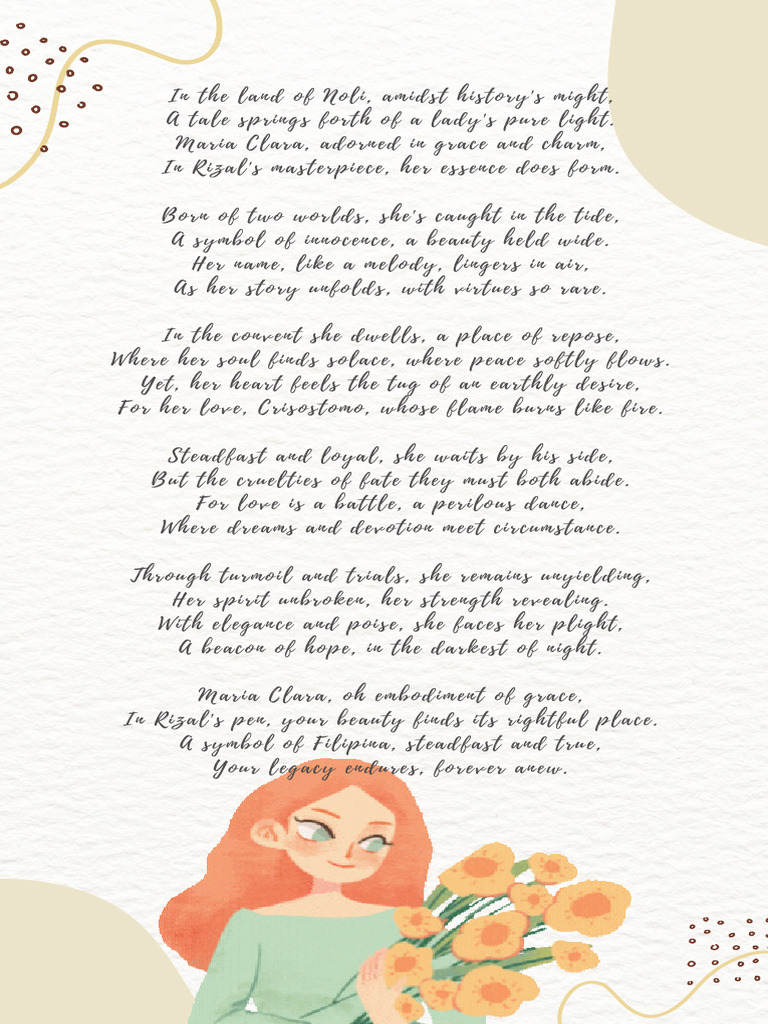 In the land of Noli, amidst history's might,
A tale springs forth of a lady's pure light.
Maria Clara, adorned in grace and charm,
In Rizal's masterpiece, her essence does form.
Born of two worlds, she's caught in the tide,
A symbol of innocence, a beauty held wide.
Her name, like a melody, lingers in air,
As her story unfolds, with virtues so rare.
In the convent she dwells, a place of repose,
Where her soul finds solace, where peace softly flows.
Yet, her heart feels the tug of an earthly desire,
For her love, Crisostomo, whose flame burns like fire.
Steadfast and loyal, she waits by his side,
But the cruelties of fate they must both abide.
For love is a battle, a perilous dance,
Where dreams and devotion meet circumstance.
Through turmoil and trials, she remains unyielding,
Her spirit unbroken, her strength revealing.
With elegance and poise, she faces her plight,
A beacon of hope, in the darkest of night.
Maria Clara, oh embodiment of grace,
In Rizal's pen, your beauty finds its rightful place.
A symbol of Filipina, steadfast and true,
Your legacy endures, forever anew.